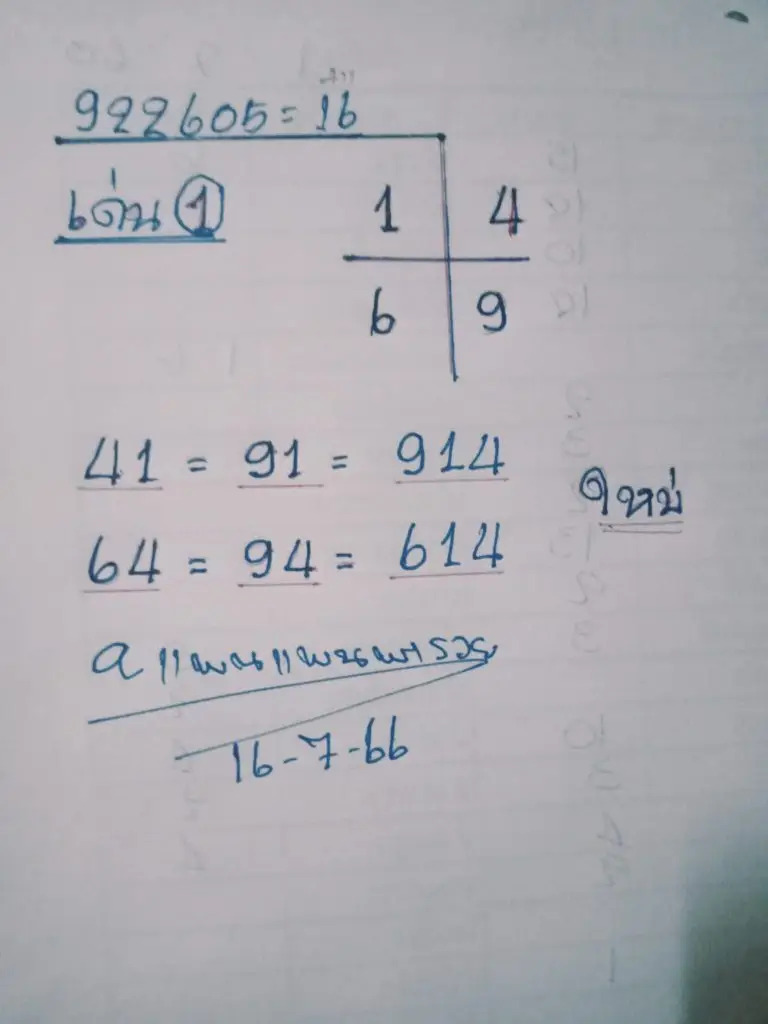 922605 = 16
เด่น 1
1 4
6 9
41 = 91 = 914
64 = 94 = 614
ใหม่
16-7-66